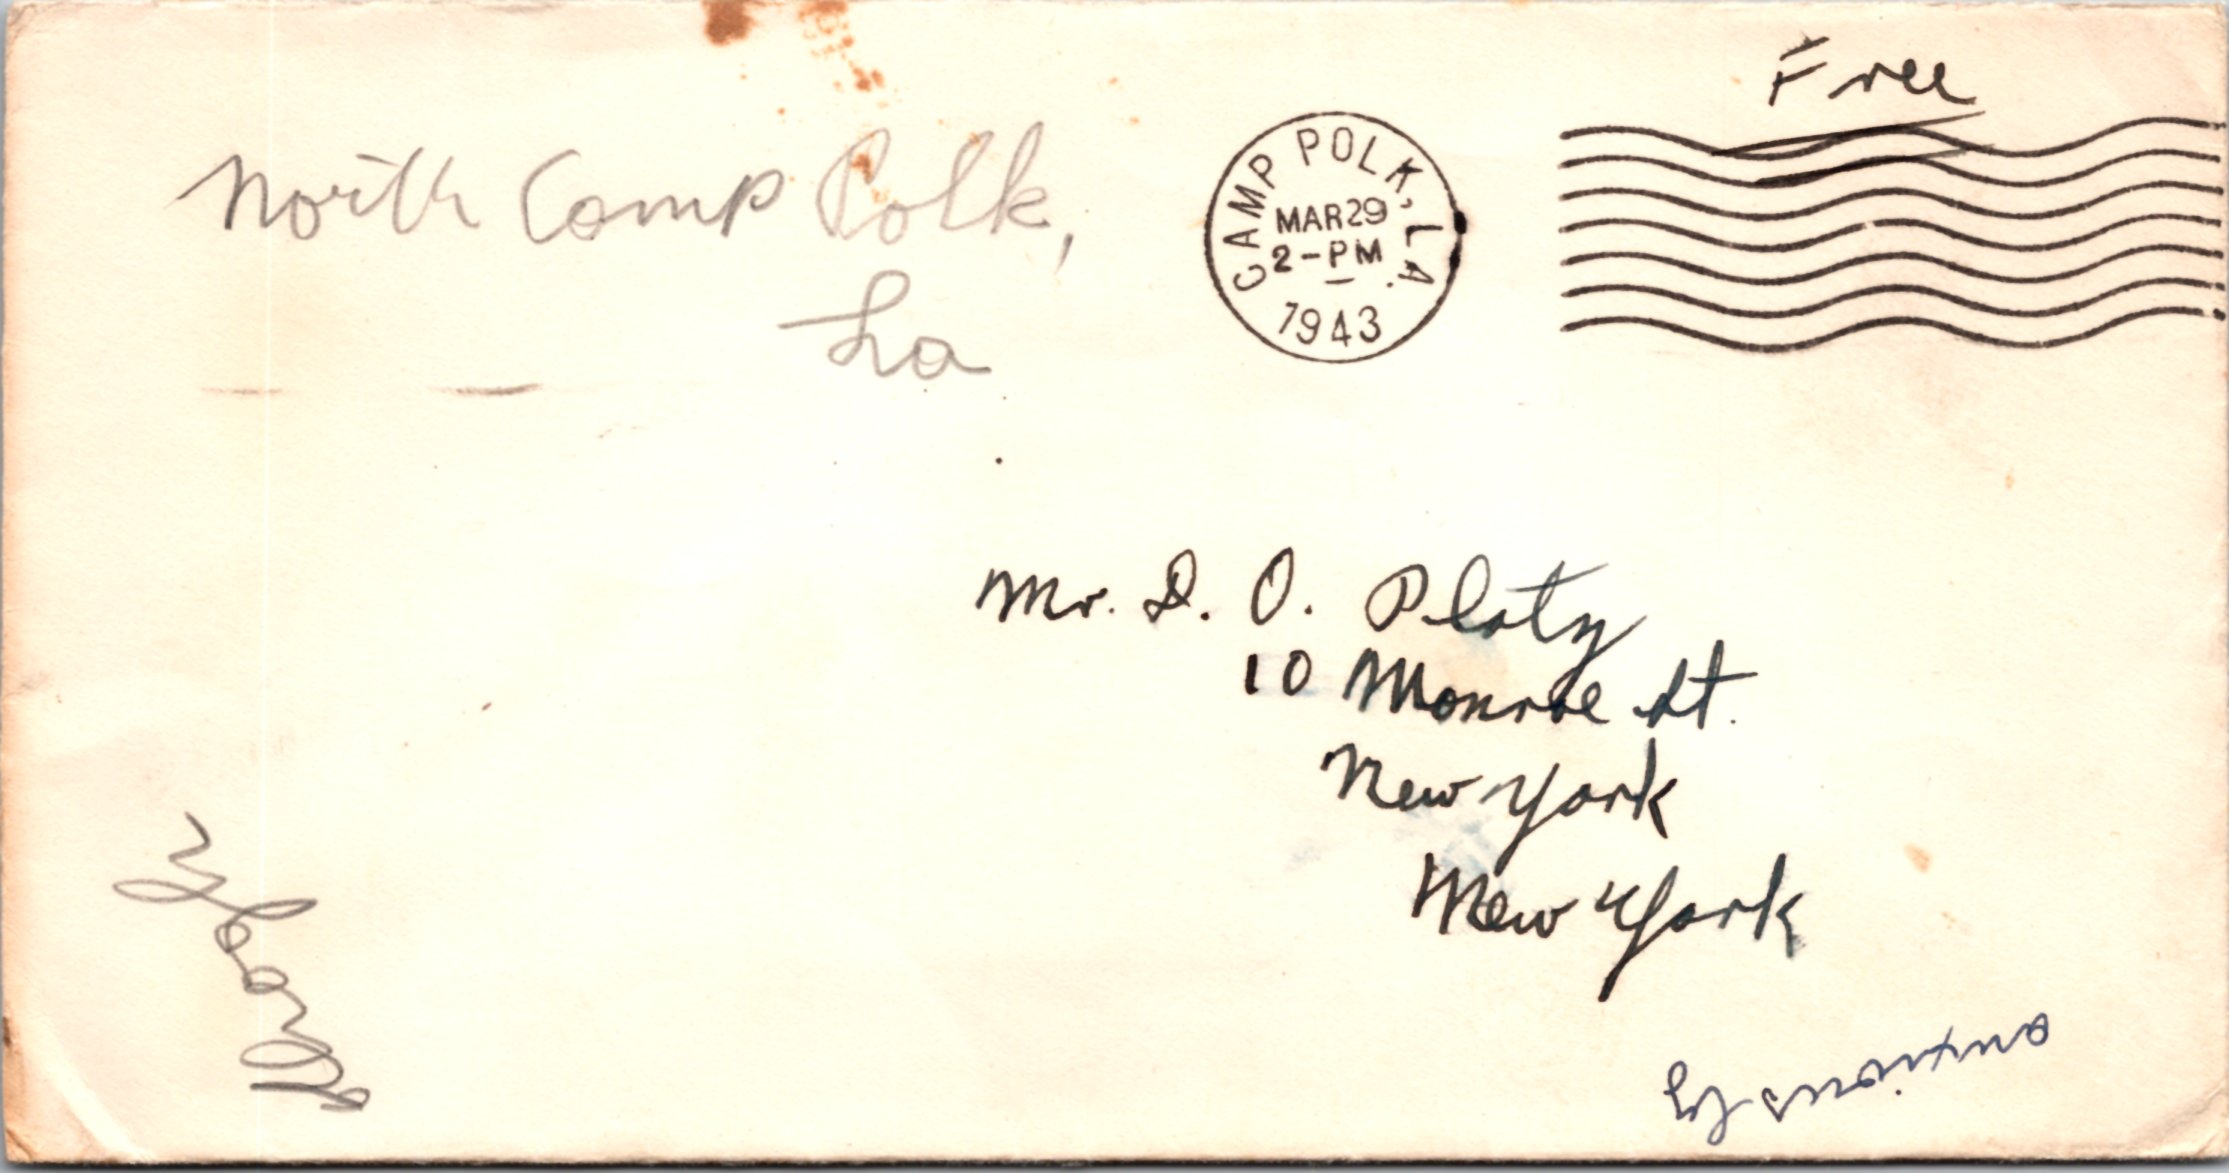 North Camp Polk,
La
CAMP POLK, LA.
MAR 29
2-PM
1943
Free
Mr. D. O. Platy
10 Monroe St.
New York
New York
anxiously